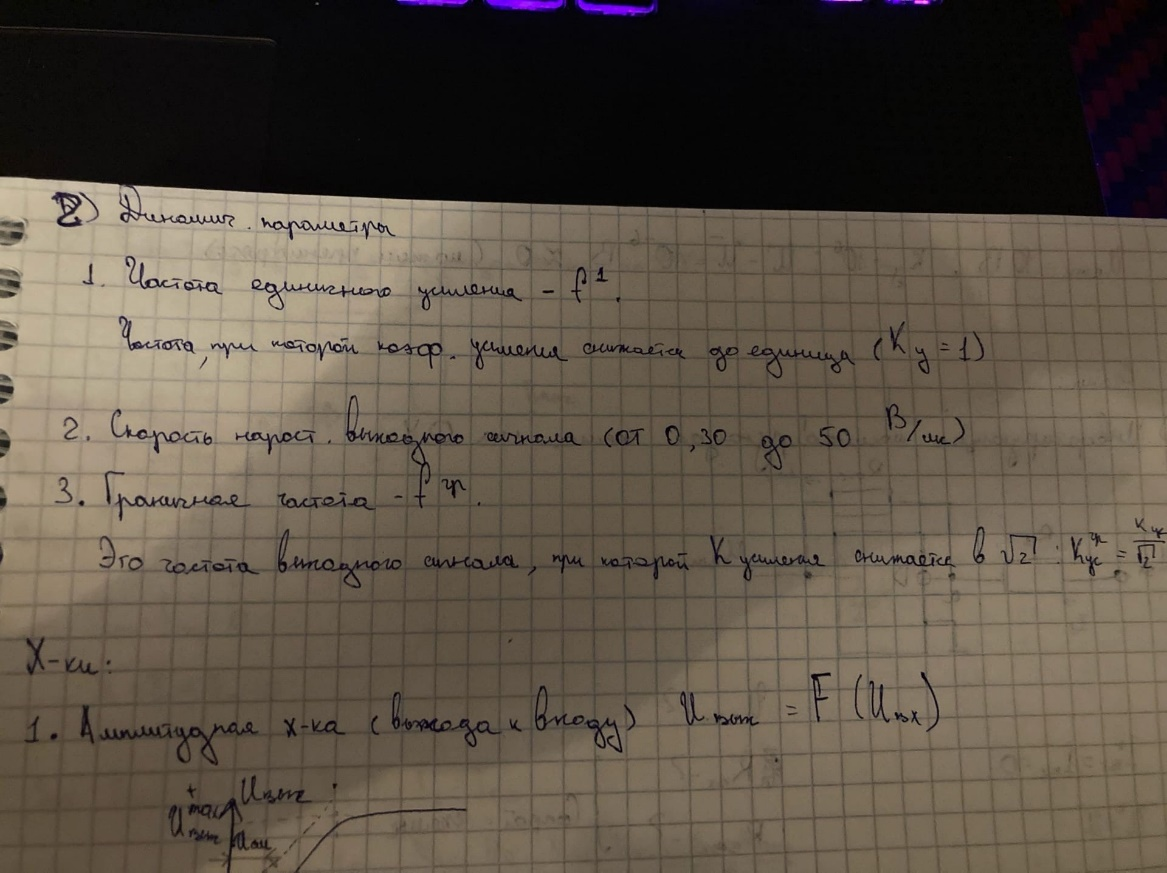 2) Динамич. параметры
1. Частота единичного усиления - f¹.
Частота, при которой коэф. усиления снижается до единица (Kу = 1)
2. Скорость нараст. выходного сигнала (от 0,30 до 50 В/мк)
3. Граничная частота - f гр.
Это частота выходного сигнала, при которой K усиления снижается в √2 : Kус гр = Kус/√2
Х-ки:
1. Амплитудная х-ка (выхода к входу) Uвых = F (Uвх)
U⁺max вых Uвых
Uсм